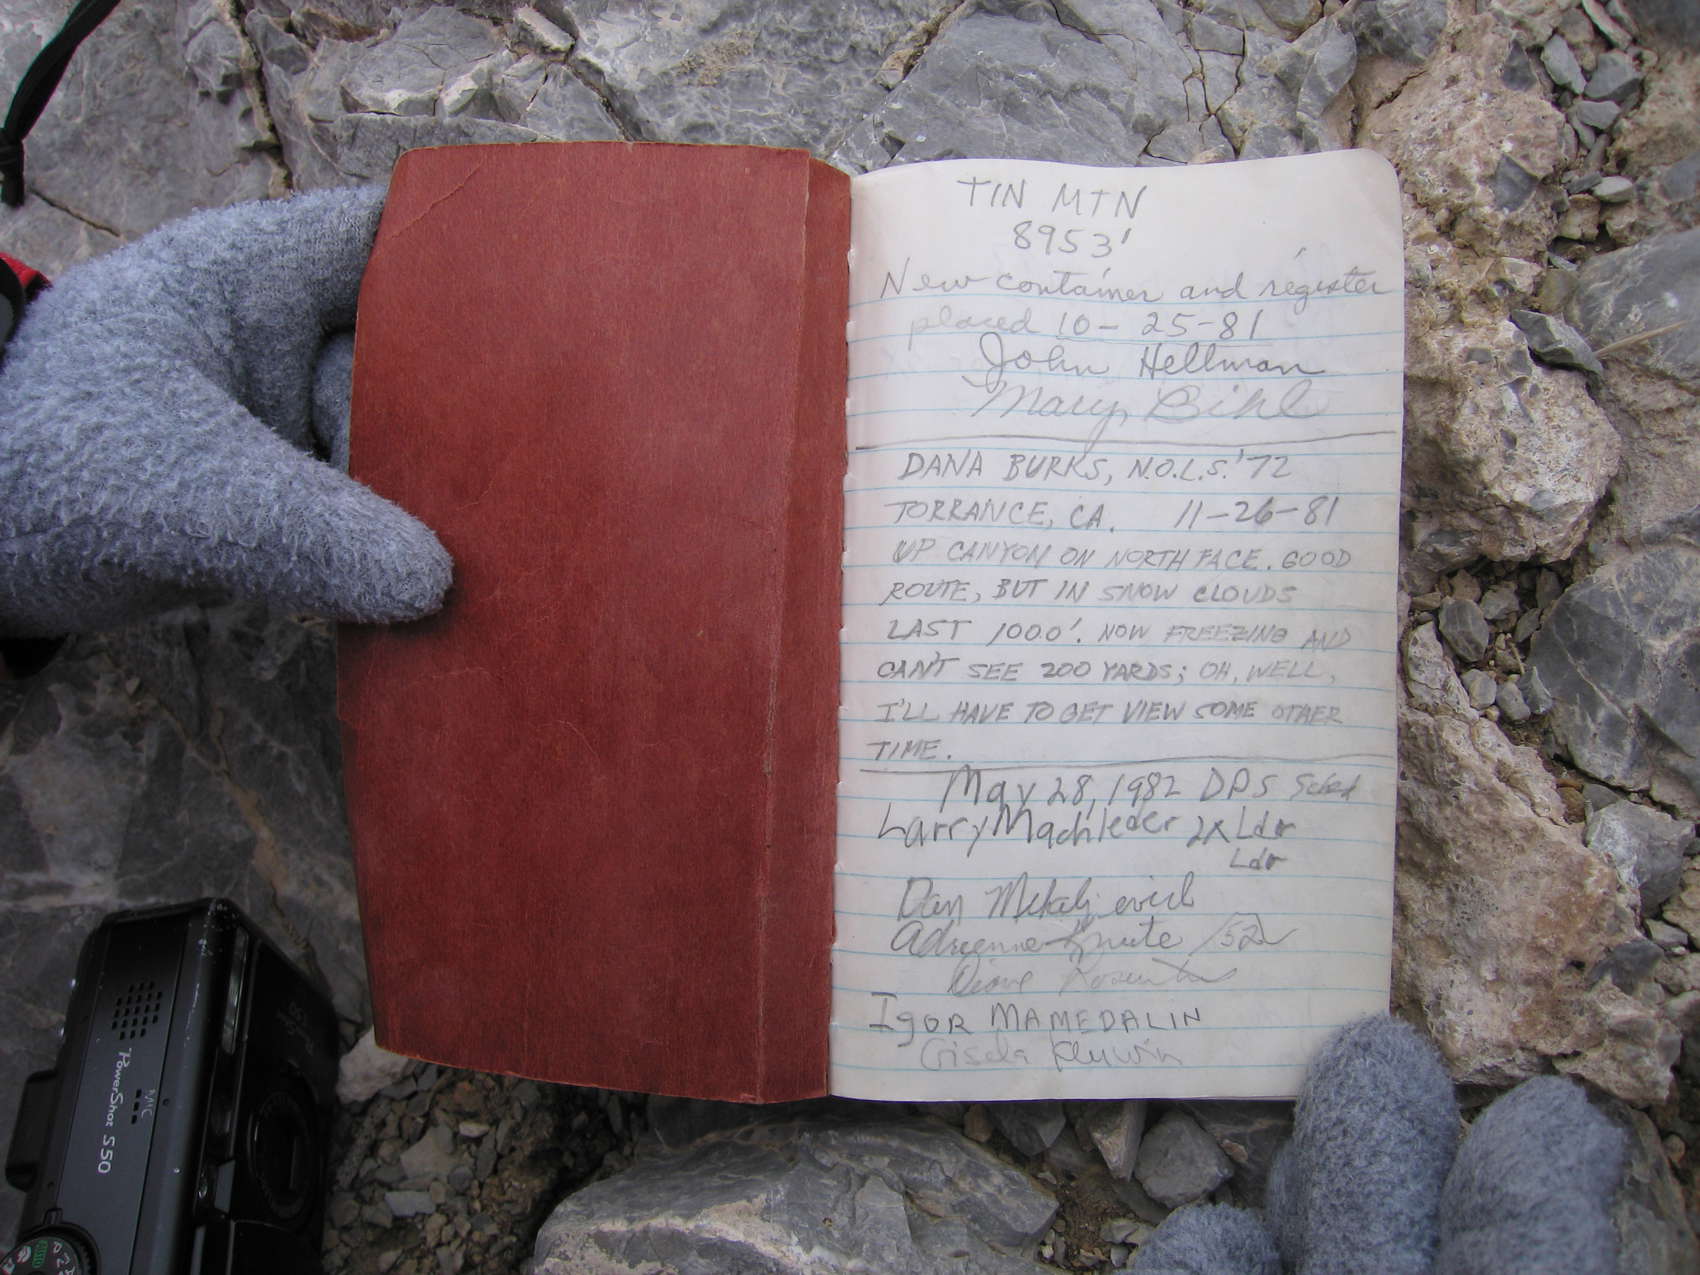 TIN MTN
8953'
New container and register
placed 10-25-81
John Hellman
Mary Bihl
DANA BURKS, N.O.L.S. '72
TORRANCE, CA. 11-26-81
UP CANYON ON NORTH FACE. GOOD
ROUTE, BUT IN SNOW CLOUDS
LAST 1000'. NOW FREEZING AND
CAN'T SEE 200 YARDS; OH, WELL,
I'LL HAVE TO GET VIEW SOME OTHER
TIME.
May 28, 1982 DPS Sched
Larry Machleder 2X Ldr
Ldr
Dan
Adrienne Knute
Diane
IGOR MAMEDALIN
Gisela
MIC
PowerShot S50